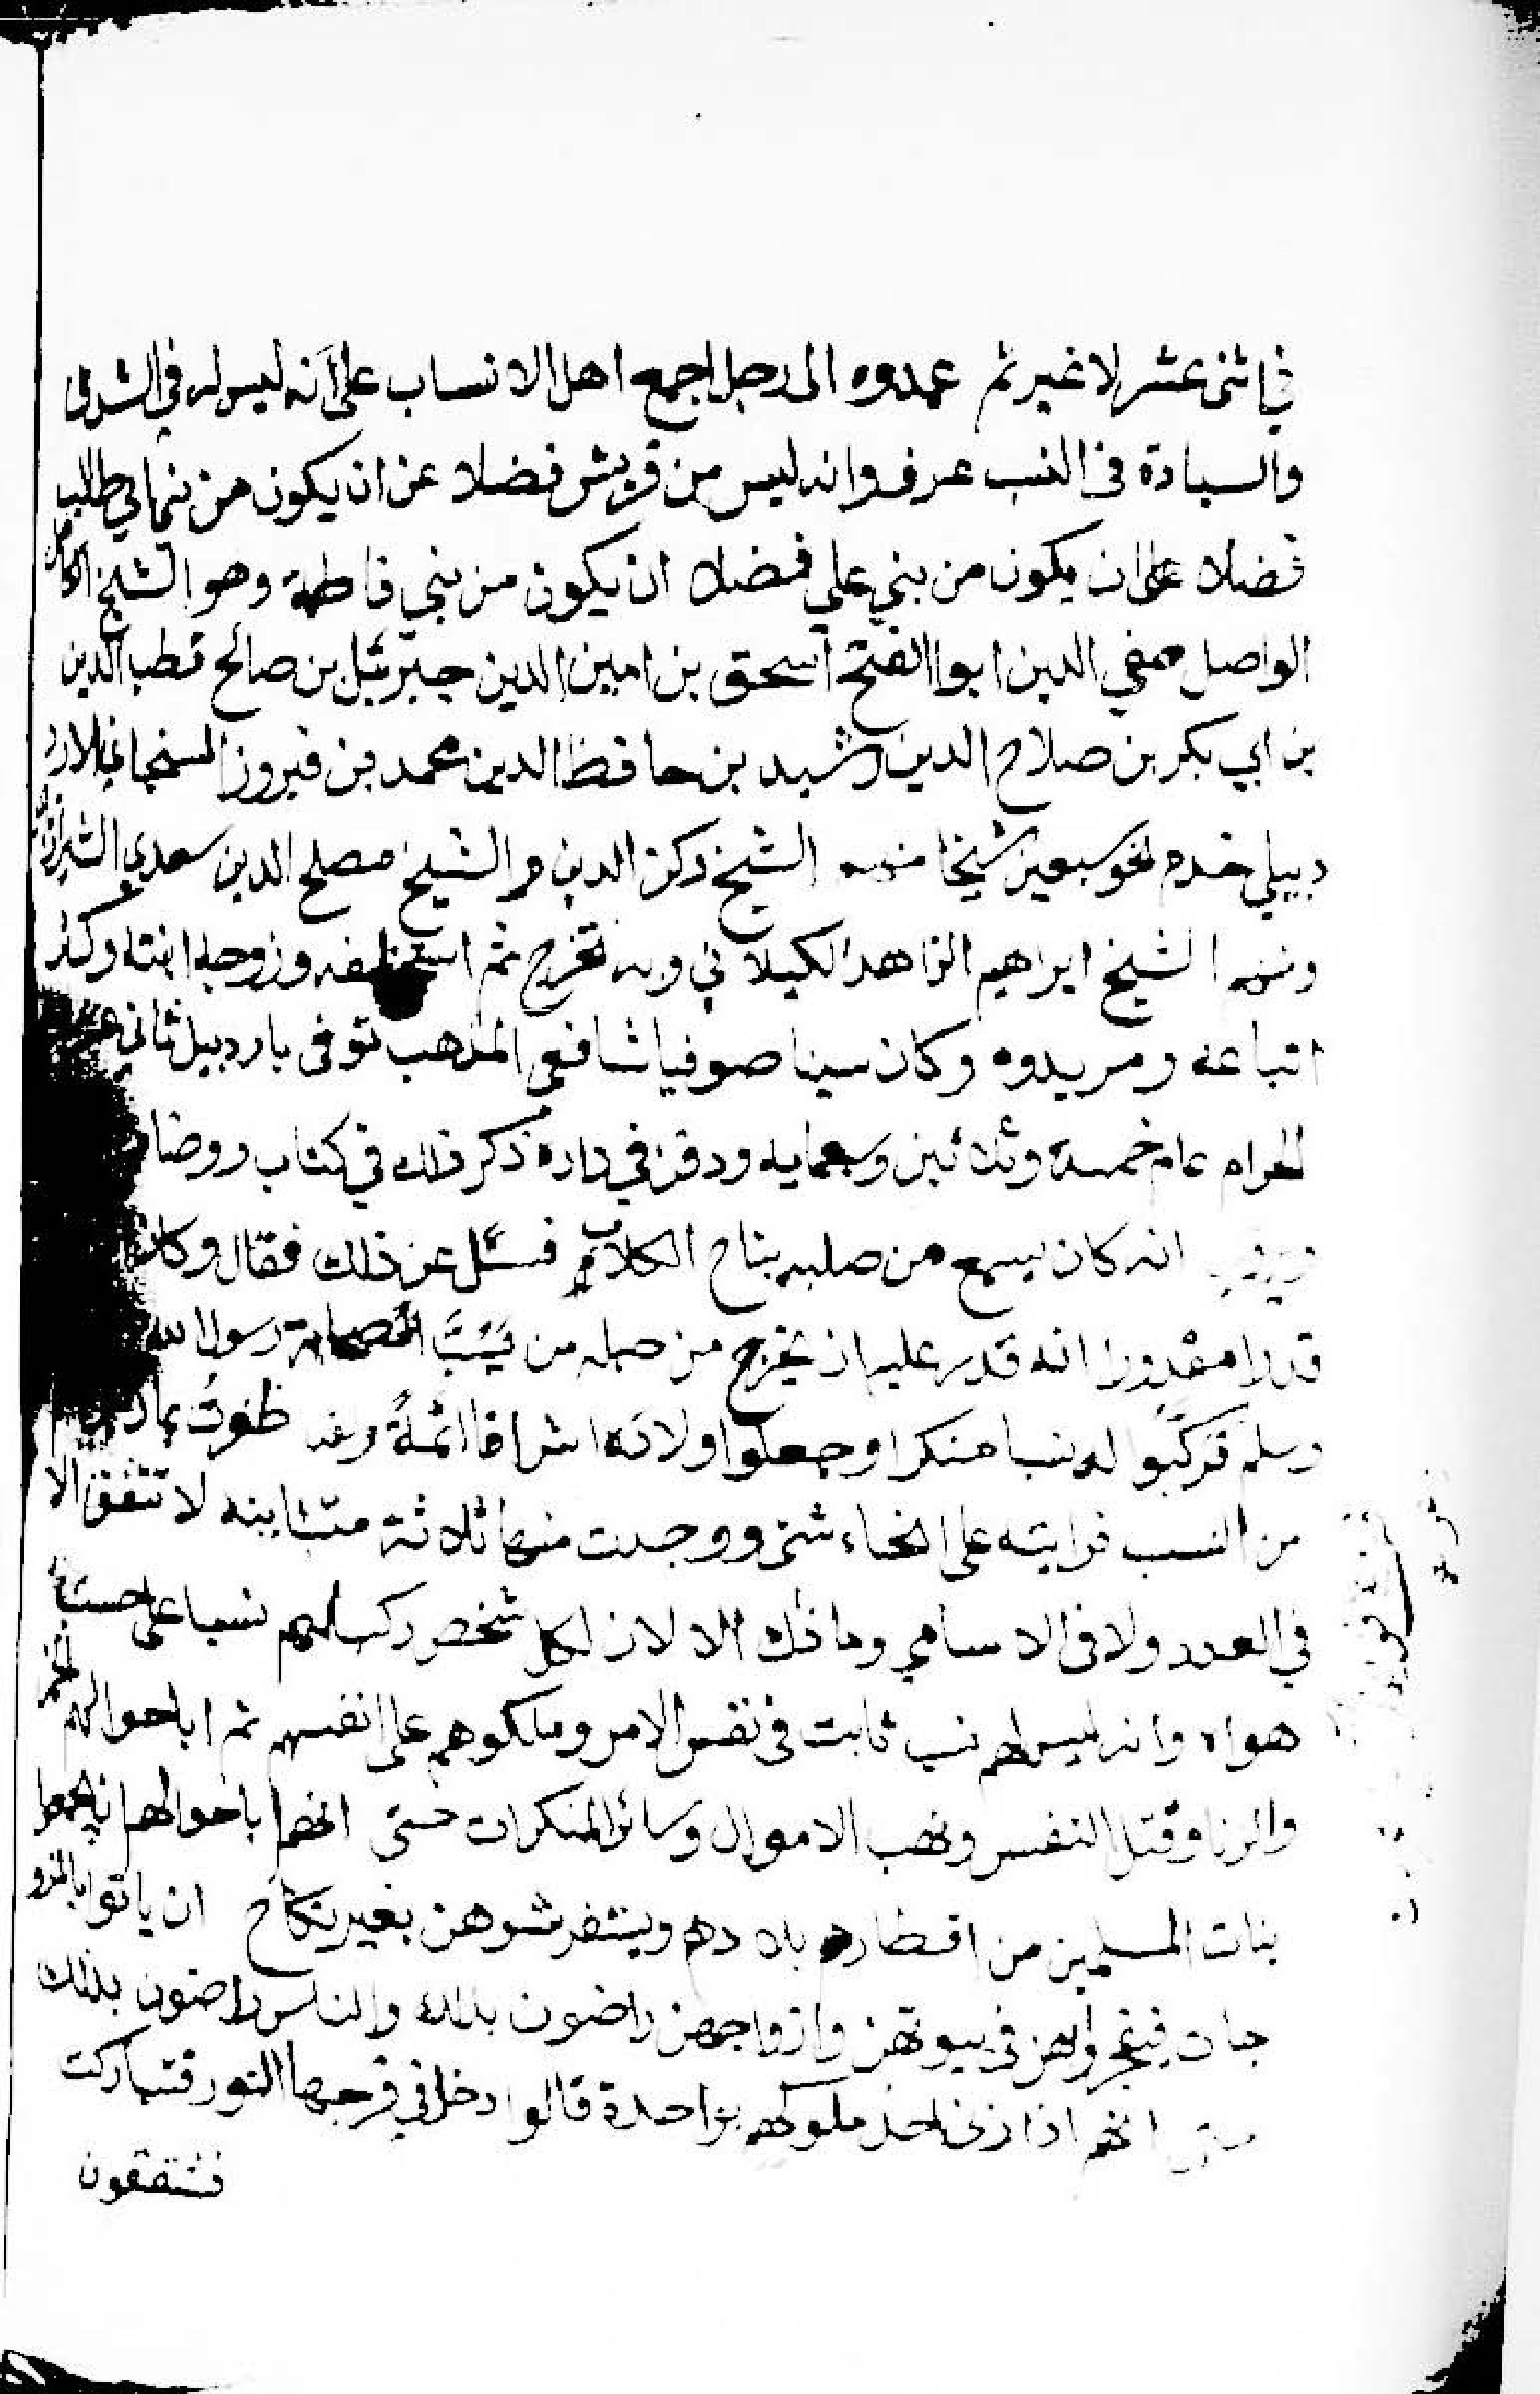 في اثنى عشر لا غير ثم عمدوه الى رجل اجمع اهل الانساب على أنه ليس له في الشرف
والسيادة في النسب عرف وانه ليس من قريش فضلا عن ان يكون من بني طالب
فضلا على ان يكون من بني علي فضلا ان يكون من بني فاطمة وهو الشيخ الكامل
الواصل صفي الدين ابوا الفتح اسحق بن امين الدين جبرئيل بن صالح قطب الدين
بن ابي بكر بن صلاح الدين رشيد بن حافظ الدين محمد بن فيروز السنجاني الار
دبيلي خدم نحو سبعين شيخا منهم الشيخ ركن الدين و الشيخ مصلح الدين سعدي الشيرازي
ومنهم الشيخ ابراهيم الزاهد الكيلاني وبه تخرج ثم استخلفه وزوجه ابنته وكثر
اتباعه ومريدوه وكان سنيا صوفيا شافعي المذهب توفى باردبيل ثاني عشر
الحرام عام خمسة وثلاثين وسبعمايه ودفن في داره ذكر ذلك في كتاب روضات
انه كان يسمع من صلبه نباح الكلاب فسئل عن ذلك فقال وكان
قدرا مقدورا انه قدر علي ان يخرج من صلبه من يسب الصحابة رسول الله
وسلم فركبوا له نسبا منكرا وجعلوا اولاده اشرافا ائمة وقد ظفرت بما
من النسب فرايته على انحاء شتى ووجدت منها ثلاثة متباينه لا تتفق الا
في العدد ولا في الاسامي وما ذلك الا لان لكل شخص ركب لهم نسبا على حسب
هواه وانه ليس لهم نسب ثابت في نفس الامر وملكوهم على انفسهم ثم اباحوا لهم الخمر
والزنا وقتل النفس ونهب الاموال وسائر المنكرات حتى انهم اباحوا لهم ان يجمعوا
بنات المسلمين من اقطار بلادهم ويستفرشوهن بغير نكاح ان ياتوا بالمزو
جات فيفجروا بهن في بيوتهن وازواجهن راضون بذلك والناس راضون بذلك
حتى انهم اذا زنى احد ملوكهم بواحدة قالوا دخل في فرجها النور فتباركت
فتتفقون